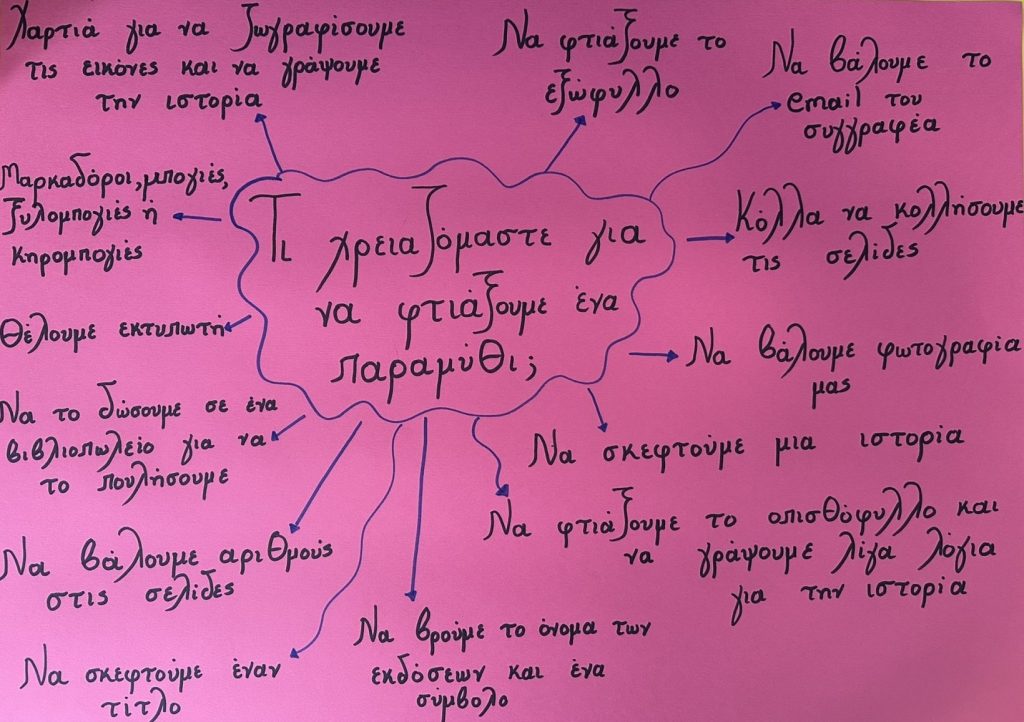 Χαρτιά για να ζωγραφίσουμε
τις εικόνες και να γράψουμε
την ιστορία
Να φτιάξουμε το
εξώφυλλο
Να βάλουμε το
email του
συγγραφέα
Μαρκαδόροι, μπογιές,
ξυλομπογιές ή
κηρομπογιές
Τι χρειαζόμαστε για
να φτιάξουμε ένα
παραμύθι;
Κόλλα να κολλήσουμε
τις σελίδες
Θέλουμε εκτυπωτή
Να βάλουμε φωτογραφία
μας
Να το δώσουμε σε ένα
βιβλιοπωλείο για να
το πουλήσουμε
Να σκεφτούμε μια ιστορία
Να φτιάξουμε το οπισθόφυλλο και
να γράψουμε λίγα λόγια
για την ιστορία
Να βάλουμε αριθμούς
στις σελίδες
Να βρούμε το όνομα των
εκδόσεων και ένα
σύμβολο
Να σκεφτούμε έναν
τίτλο